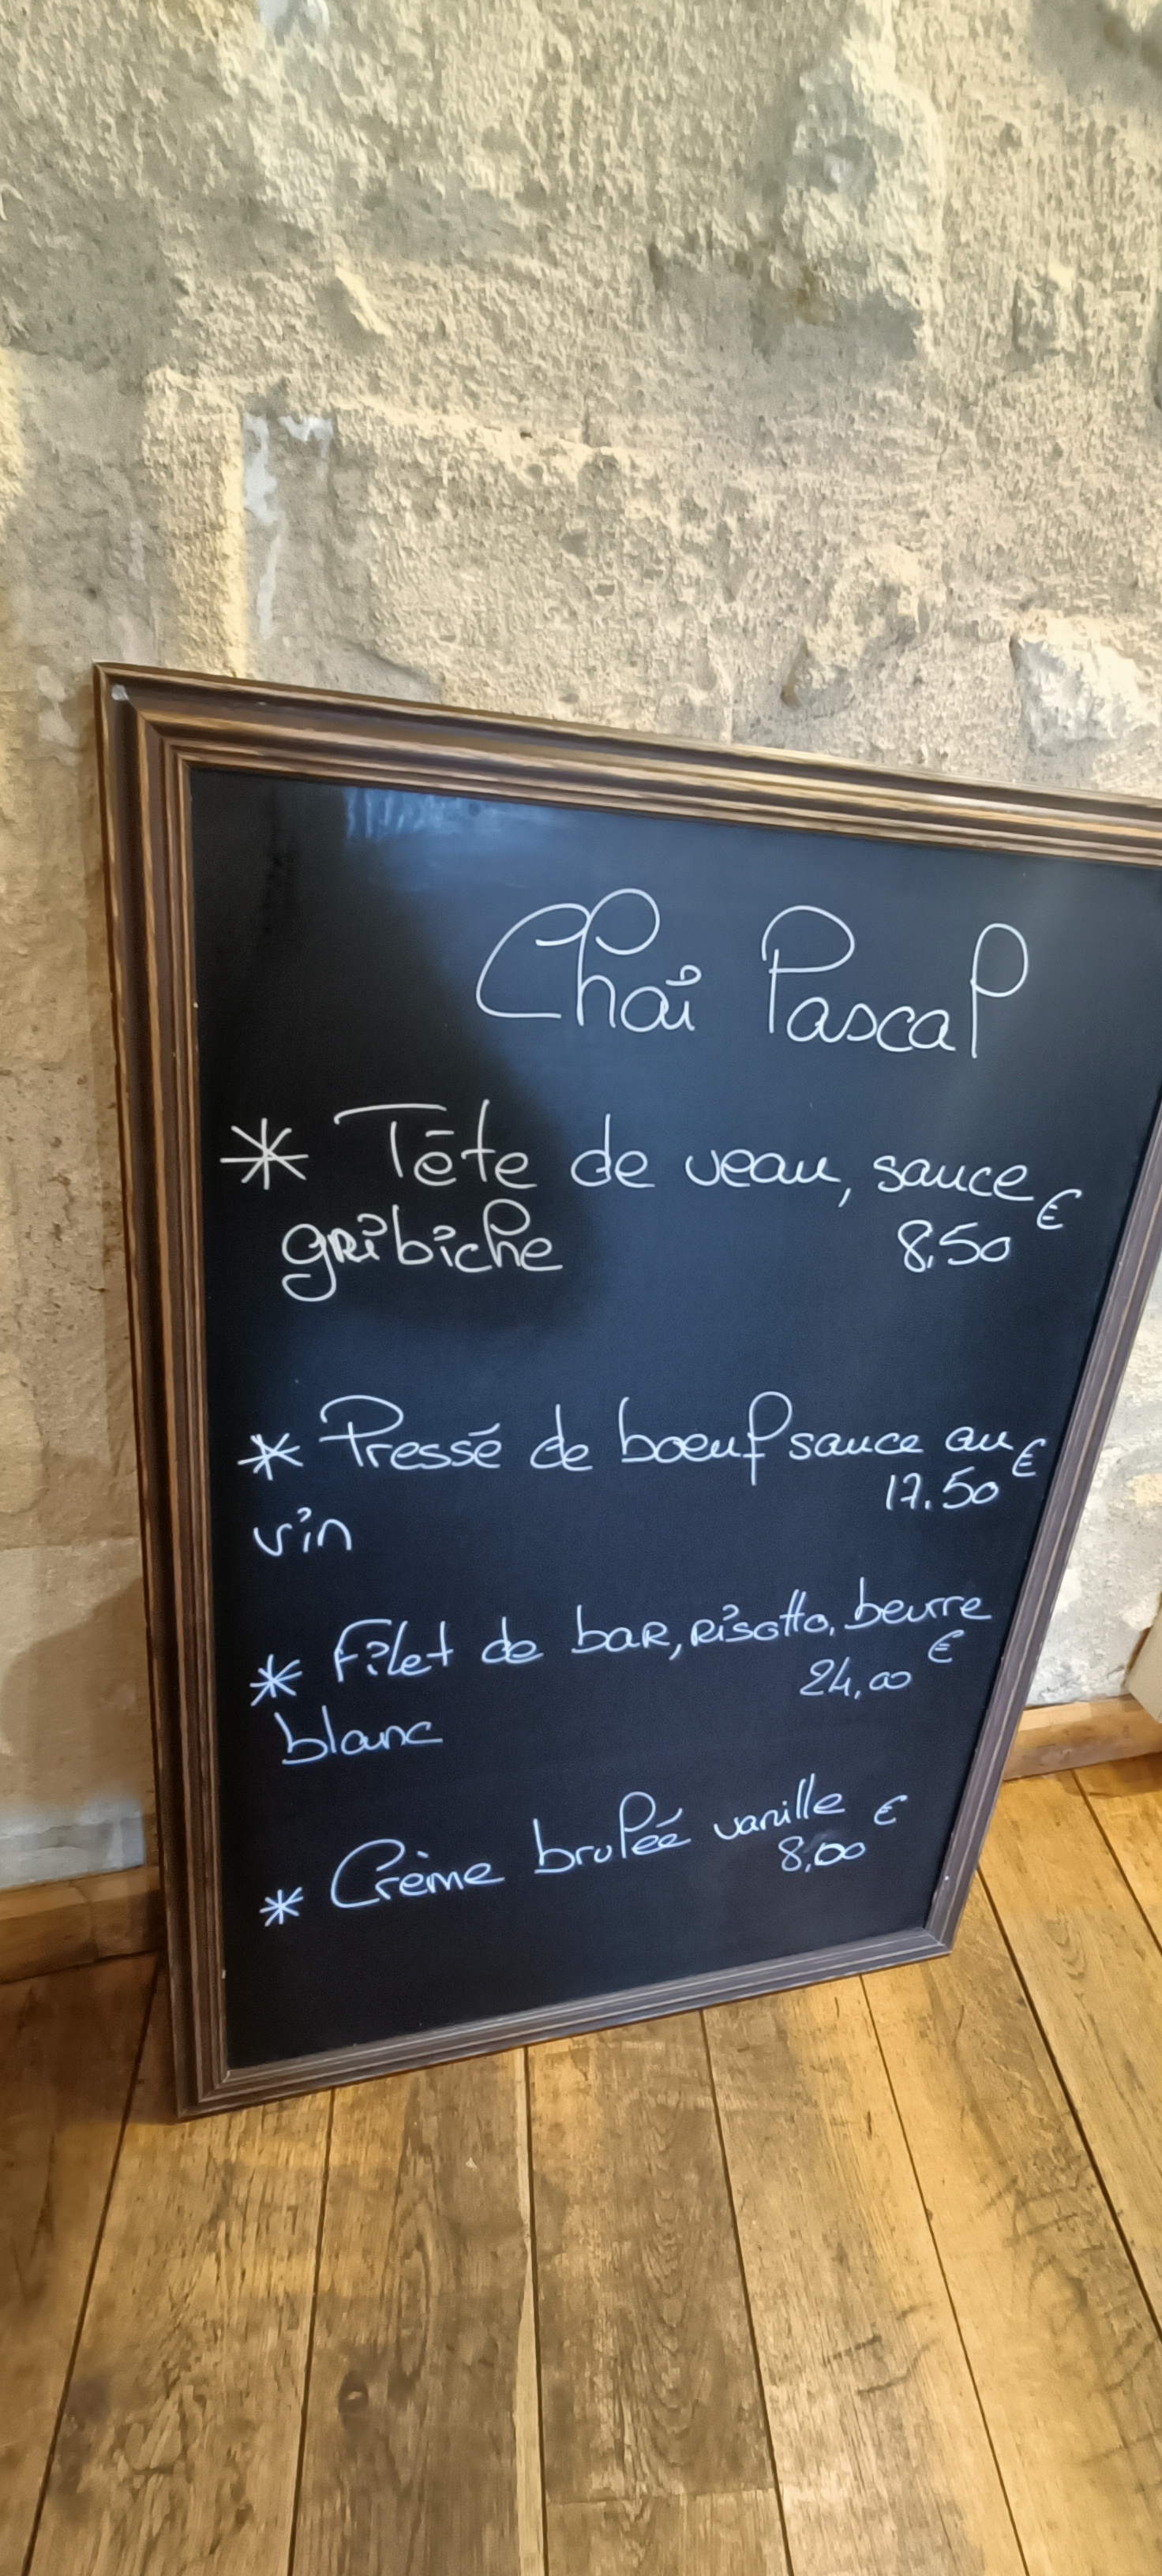 Chai Pascal
* Tête de veau, sauce €
gribiche 8,50
* Pressé de boeuf sauce au €
17.50
vin
* Filet de bar, risotto, beurre
€
24,00
blanc
* Crème brulée vanille €
8,00